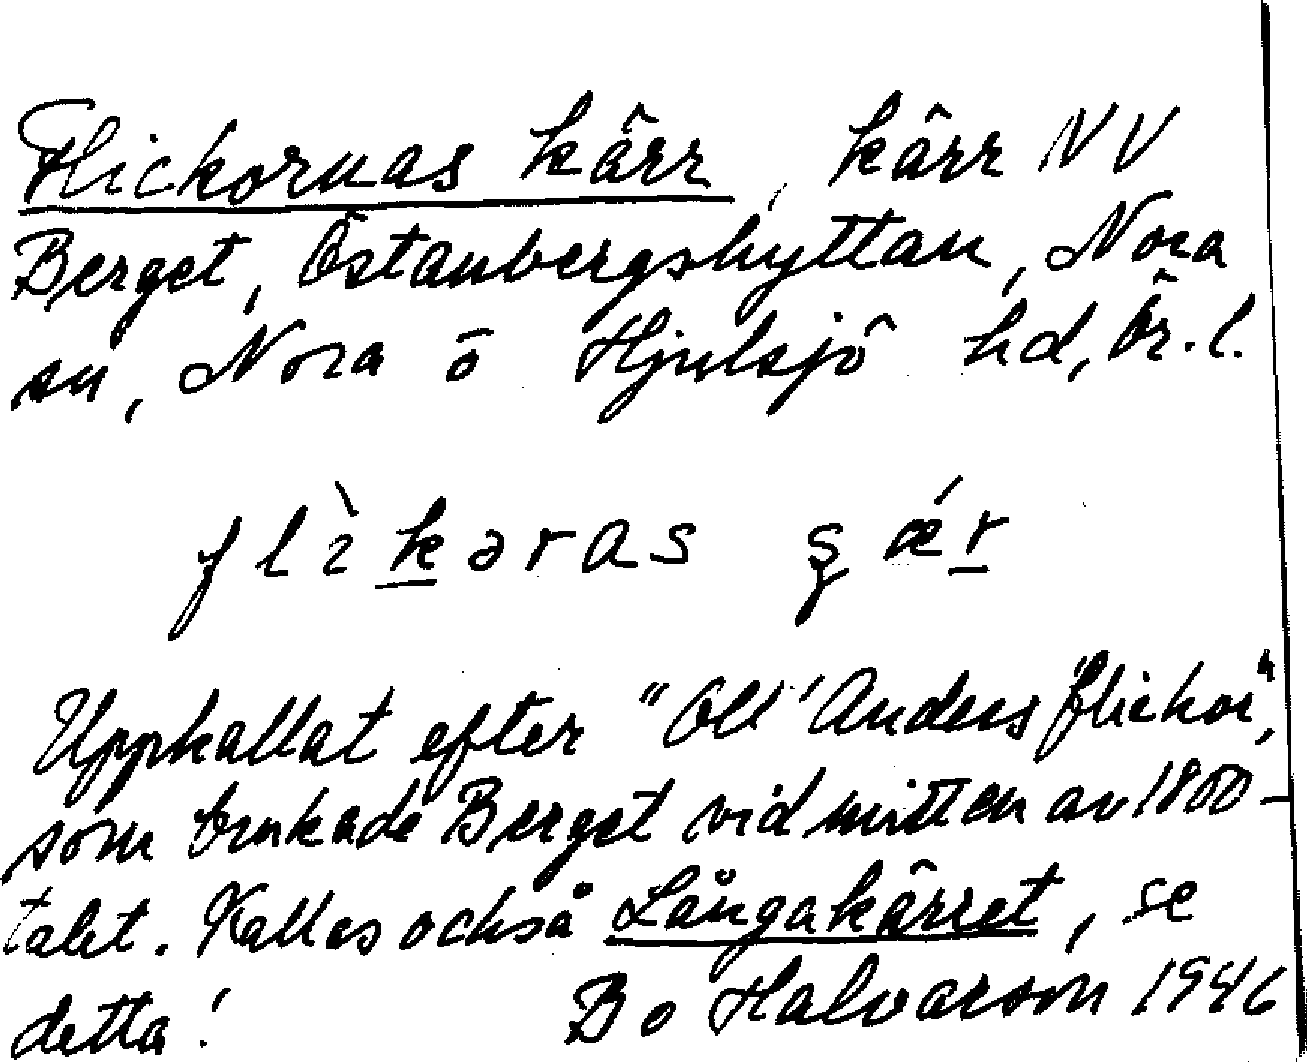 Flickornas kärr, kärr NV
Berget, Östanbergshyttan, Nora
sn, Nora o Hjulsjö hd, Ör. l.
flìkəras şǽr
Uppkallat efter "Oll' Anders flickor",
som brukade Berget vid mitten av 1800-
talet. Kallas också Långakärret, se
detta!
Bo Halvarson 1946